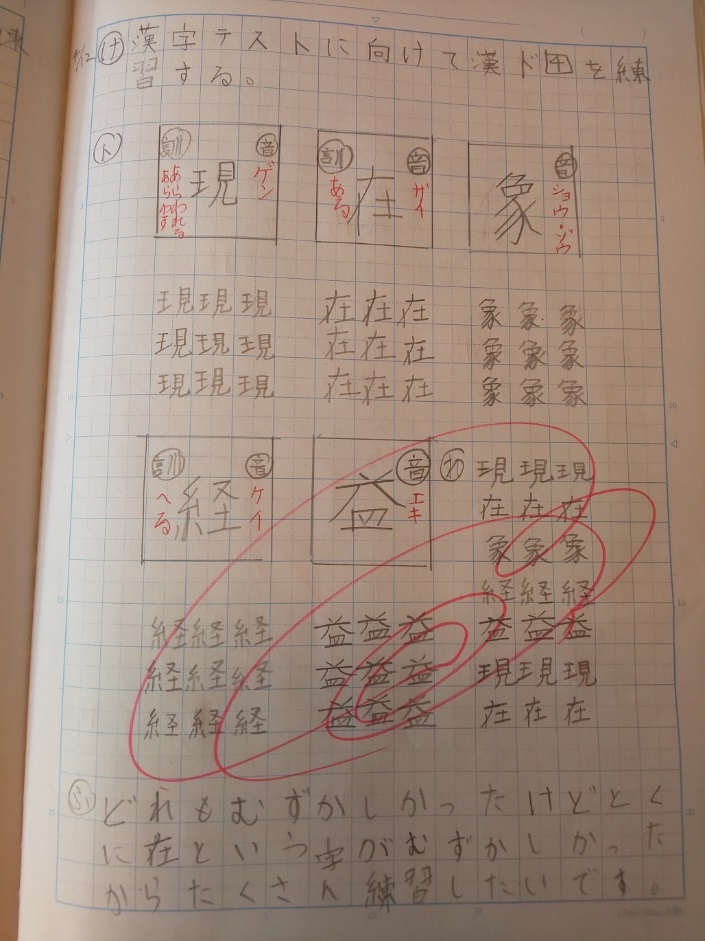 4/12 け 漢字テストに向けて漢ド4を練
習する。
ト
訓 現 音
あらわれる あらわす ゲン
訓 在 音
ある ザイ
象 音
ショウ・ゾウ
現現現 在在在 象象象
現現現 在在在 象象象
現現現 在在在 象象象
訓 経 音
へる ケイ
益 音
エキ
経経経 益益益
経経経 益益益
経経経 益益益
わ 現現現
在在在
象象象
経経経
益益益
現現現
在在在
ふ どれもむずかしかったけどとく
に在という字がむずかしかった
からたくさん練習したいです。